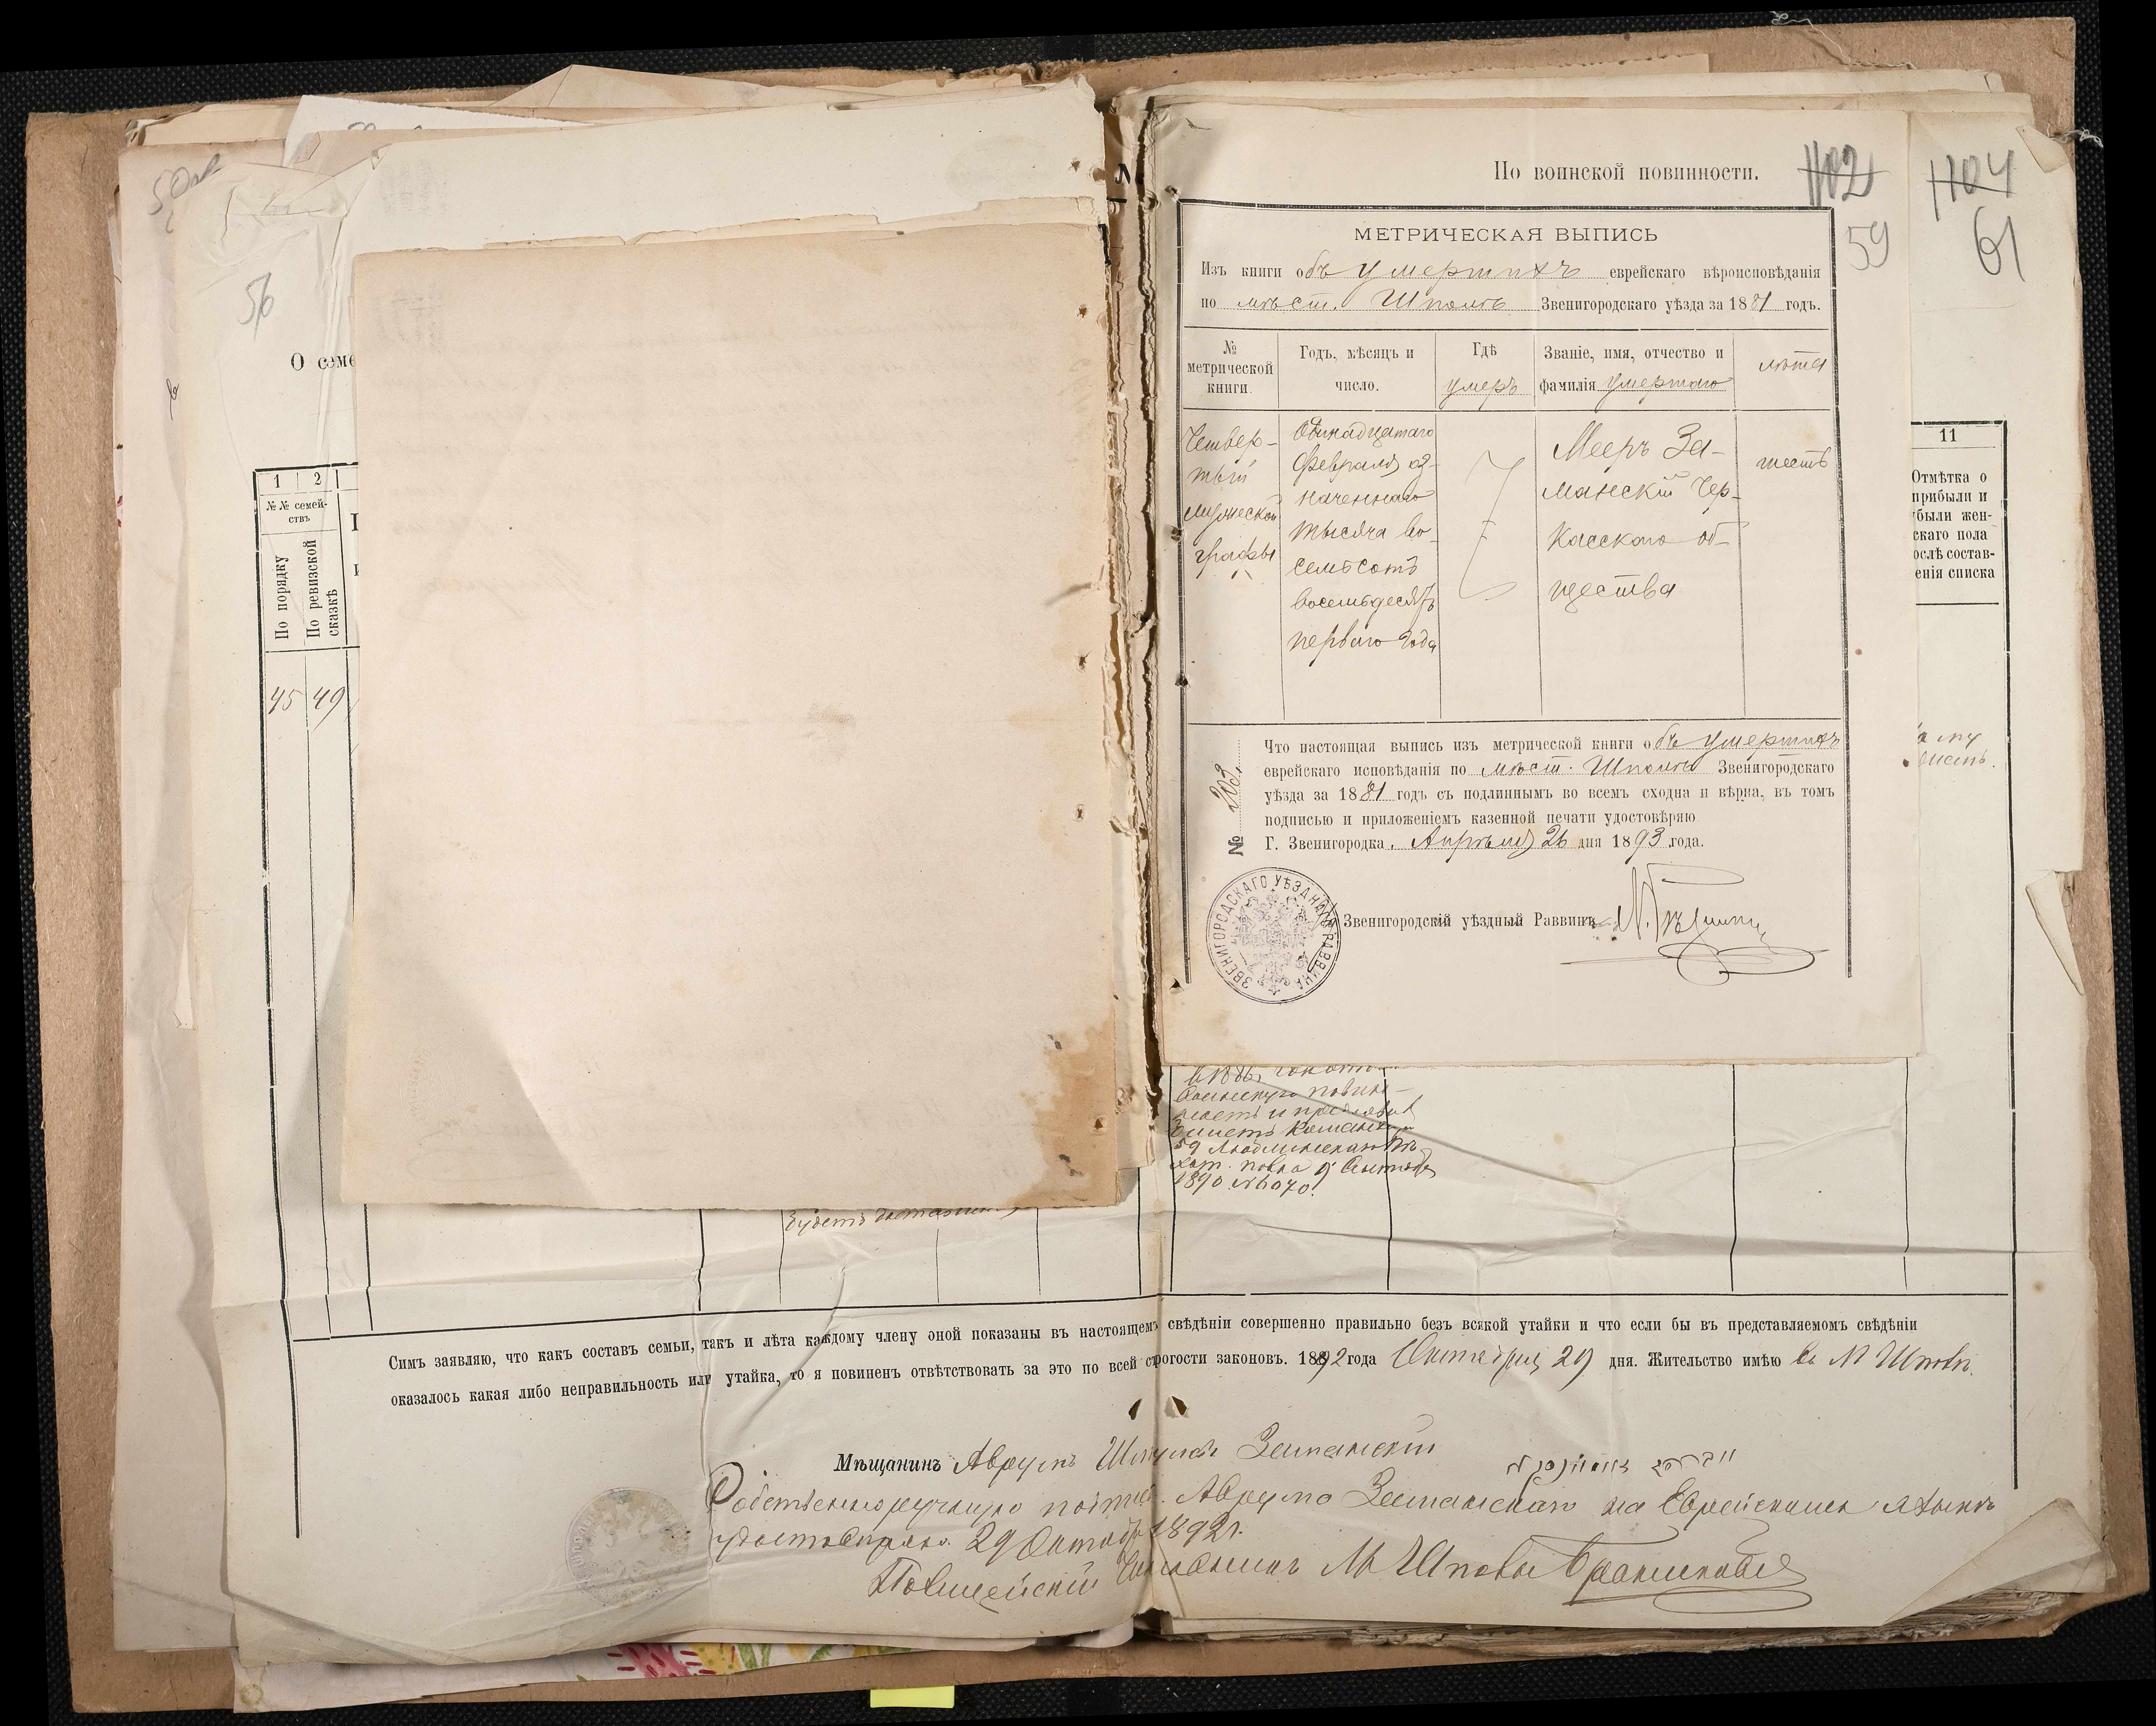 56
О семе
1 2
№№ семей-
ствъ
По порядку
По ревизской
сказкѣ
45 49
По воинской повинности.
102
59
104
61
МЕТРИЧЕСКАЯ ВЫПИСЬ
Изъ книги объ умершихъ еврейскаго вѣроисповѣданія
по мѣст. Шполѣ Звенигородскаго уѣзда за 1881 годъ.
№
метрической
книги.
Годъ, мѣсяцъ и
число.
Гдѣ
умеръ
Званіе, имя, отчество и
фамилія умершаго
лѣта
Четвер-
тый
мужеской
графы
Одинадцатаго
Февраля оз-
наченнаго
тысяча во-
семьсотъ
восемьдесятъ
перваго года
Мееръ За-
манскій Чер-
касскаго об-
щества
шесть
Что настоящая выпись изъ метрической книги объ умершихъ
еврейскаго исповѣданія по мѣст. Шполѣ Звенигородскаго
уѣзда за 1881 годъ съ подлиннымъ во всемъ сходна и вѣрна, въ томъ
подписью и приложеніемъ казенной печати удостовѣряю
Г. Звенигородка, Апрѣля 26 дня 1893 года.
№ 203.
Звенигородскій уѣздный Раввинъ
ЗВЕНИГОРОДСКАГО УѢЗДНАГО РАВВИНА
11
Отмѣтка о
прибыли и
были жен-
скаго пола
ослѣ состав-
енія списка
1890 №6070.
Симъ заявляю, что какъ составъ семьи, такъ и лѣта каждому члену оной показаны въ настоящемъ свѣдѣніи совершенно правильно безъ всякой утайки и что если бы въ представляемомъ свѣдѣніи
оказалось какая либо неправильность или утайка, то я повиненъ отвѣтствовать за это по всей строгости законовъ. 1892 года Октября 29 дня. Жительство имѣю въ М Шполѣ.
Мѣщанинъ Аврумъ Шмулев Заманскій
Собственноручную подпись Аврума Заманскаго на Еврейскомъ языкѣ
удостовѣряю. 29 Октября 1892 г.
Полицейскій М Шполы